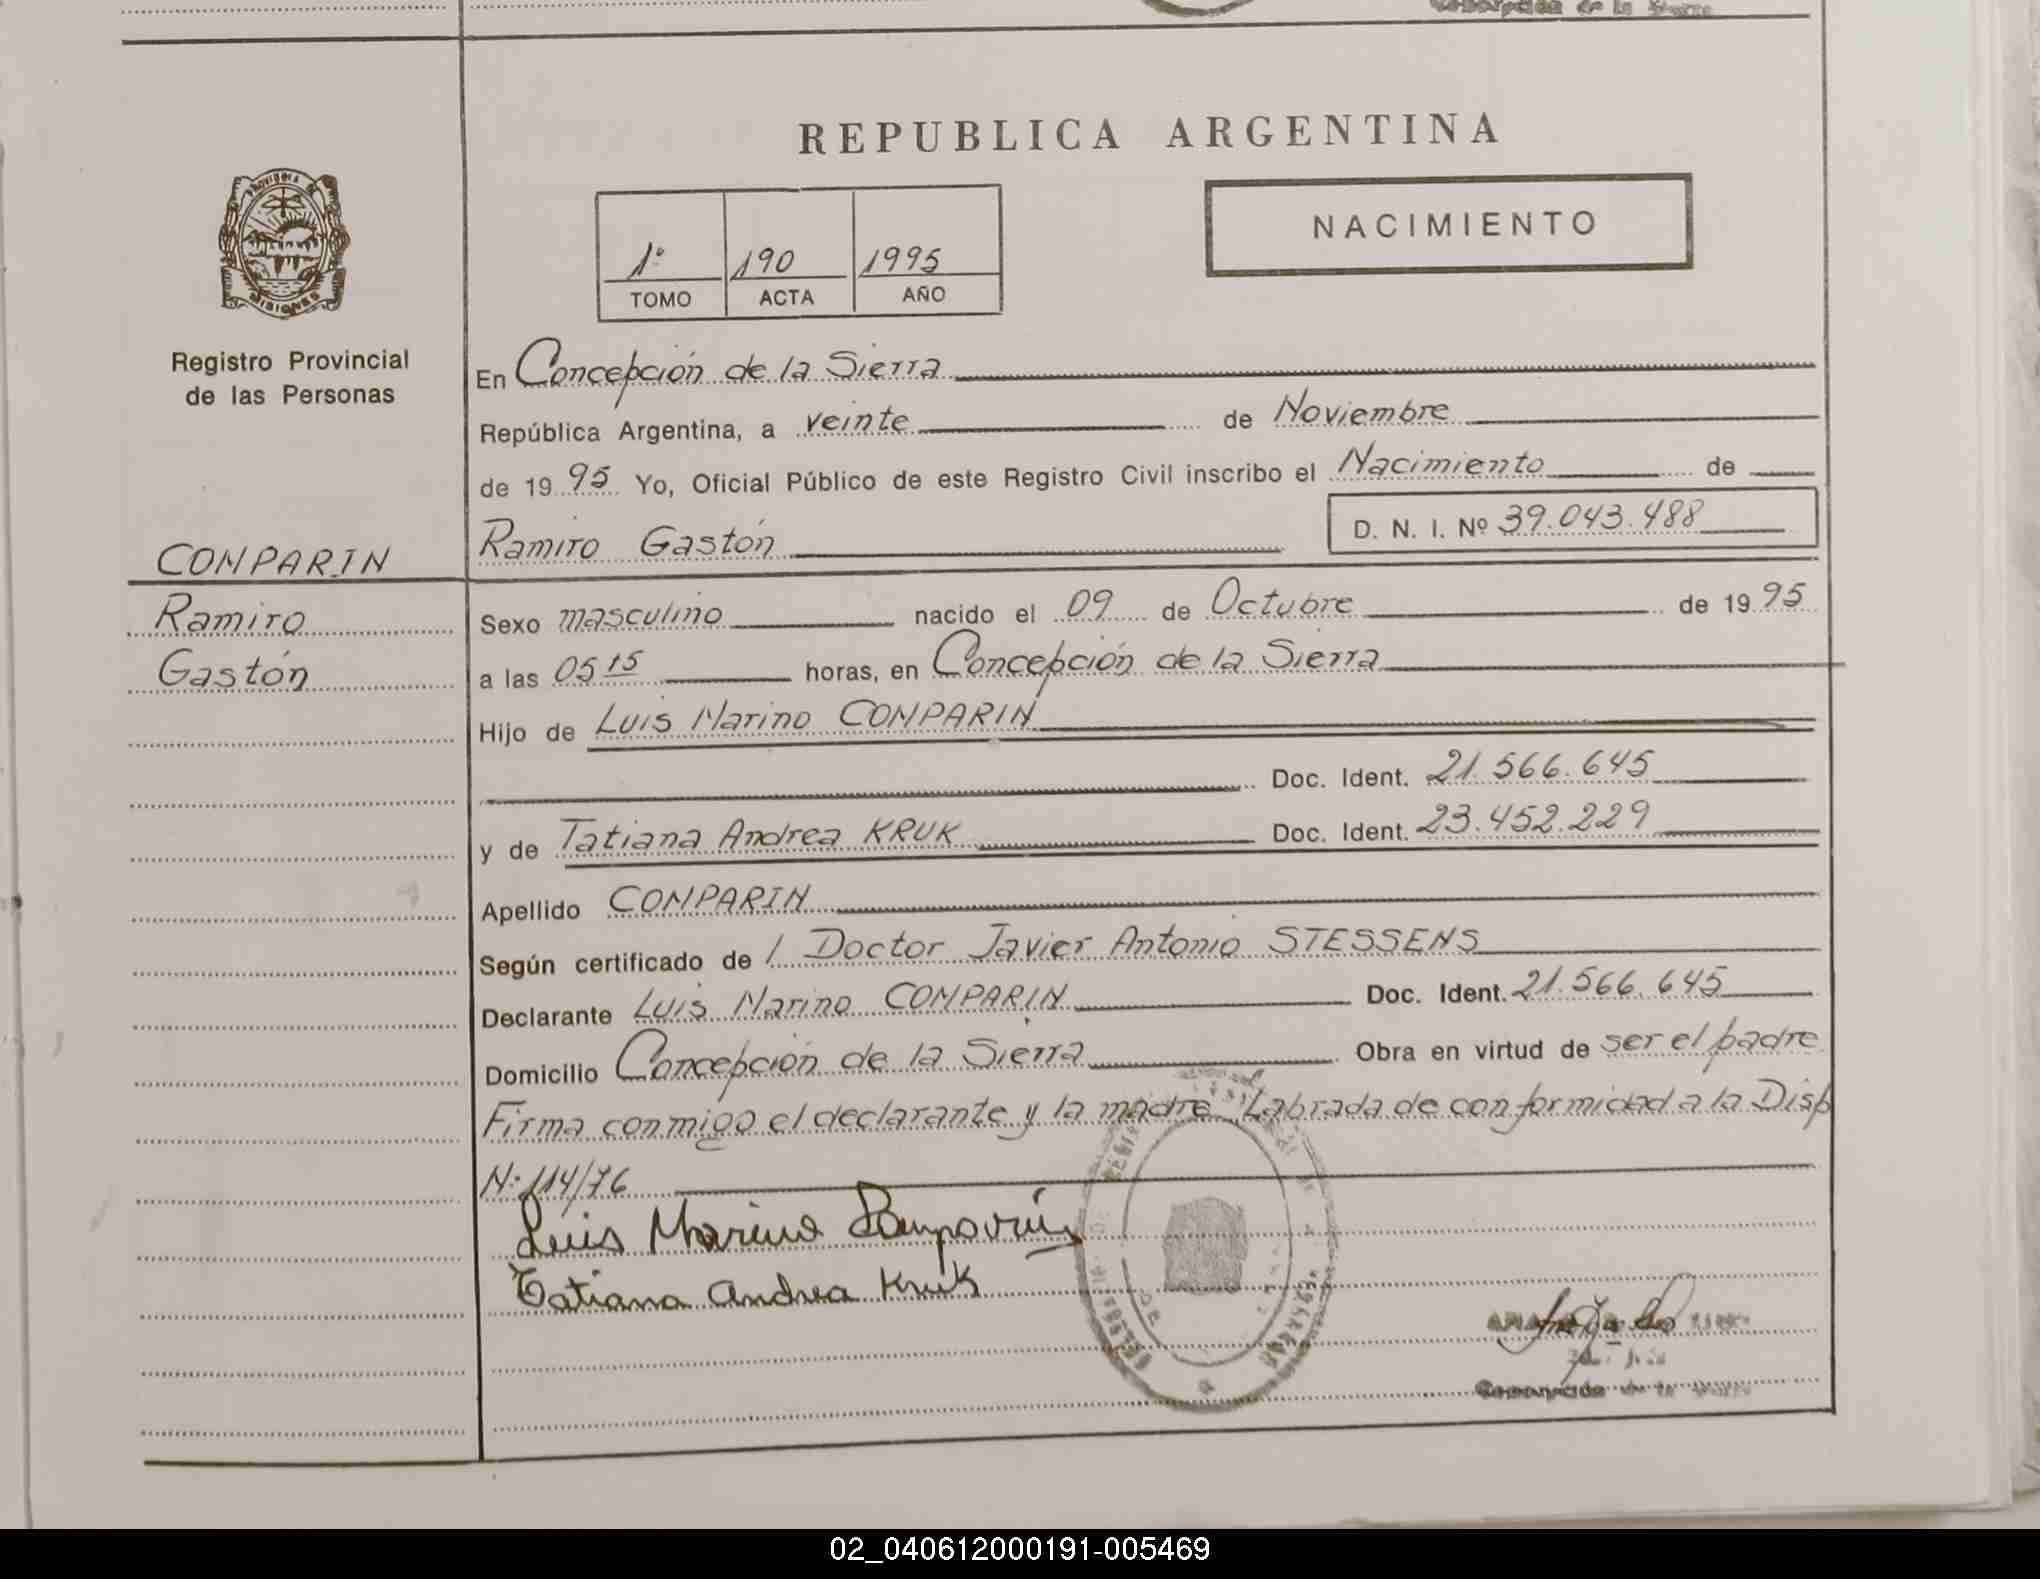 Concepción de la Sierra
REPUBLICA ARGENTINA
PROVINCIA DE
MISIONES
Registro Provincial
de las Personas
1º 190 1995
TOMO ACTA AÑO
NACIMIENTO
En Concepción de la Sierra
República Argentina, a veinte de Noviembre
de 1995 Yo, Oficial Público de este Registro Civil inscribo el Nacimiento de
Ramiro Gastón D. N. I. Nº 39.043.488
COMPARIN
Ramiro
Gastón
Sexo masculino nacido el 09 de Octubre de 1995
a las 05 15 horas, en Concepción de la Sierra
Hijo de Luis Marino COMPARIN
Doc. Ident. 21.566.645
y de Tatiana Andrea KRUK Doc. Ident. 23.452.229
Apellido COMPARIN
Según certificado de l Doctor Javier Antonio STESSENS
Declarante Luis Marino COMPARIN Doc. Ident. 21.566.645
Domicilio Concepción de la Sierra Obra en virtud de ser el padre
Firma conmigo el declarante y la madre. Labrada de conformidad a la Disp
Nº 114/76
Luis Marino Comparin
Tatiana Andrea Kruk
Concepción de la Sierra
02_040612000191-005469